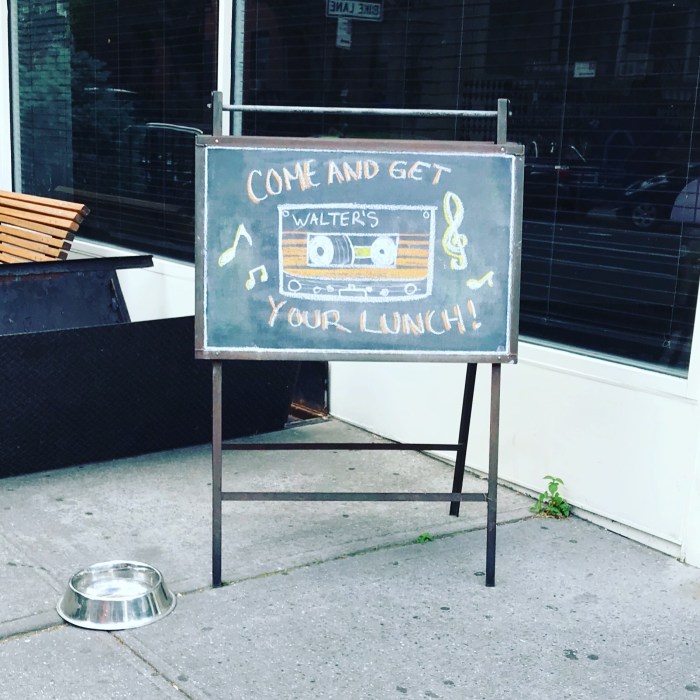 BIKE LANE
COME AND GET
WALTER'S
YOUR LUNCH!